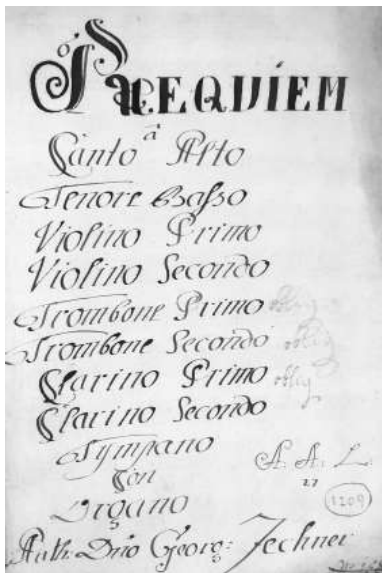 REQUIEM
à
Canto Alto
Tenore Basso
Violino Primo
Violino Secondo
Trombone Primo oblig
Trombone Secondo oblig
Clarino Primo oblig
Clarino Secondo
Tympano
Con
Organo
A. A. L.
1209
Auth: Dño Georg: Zechner